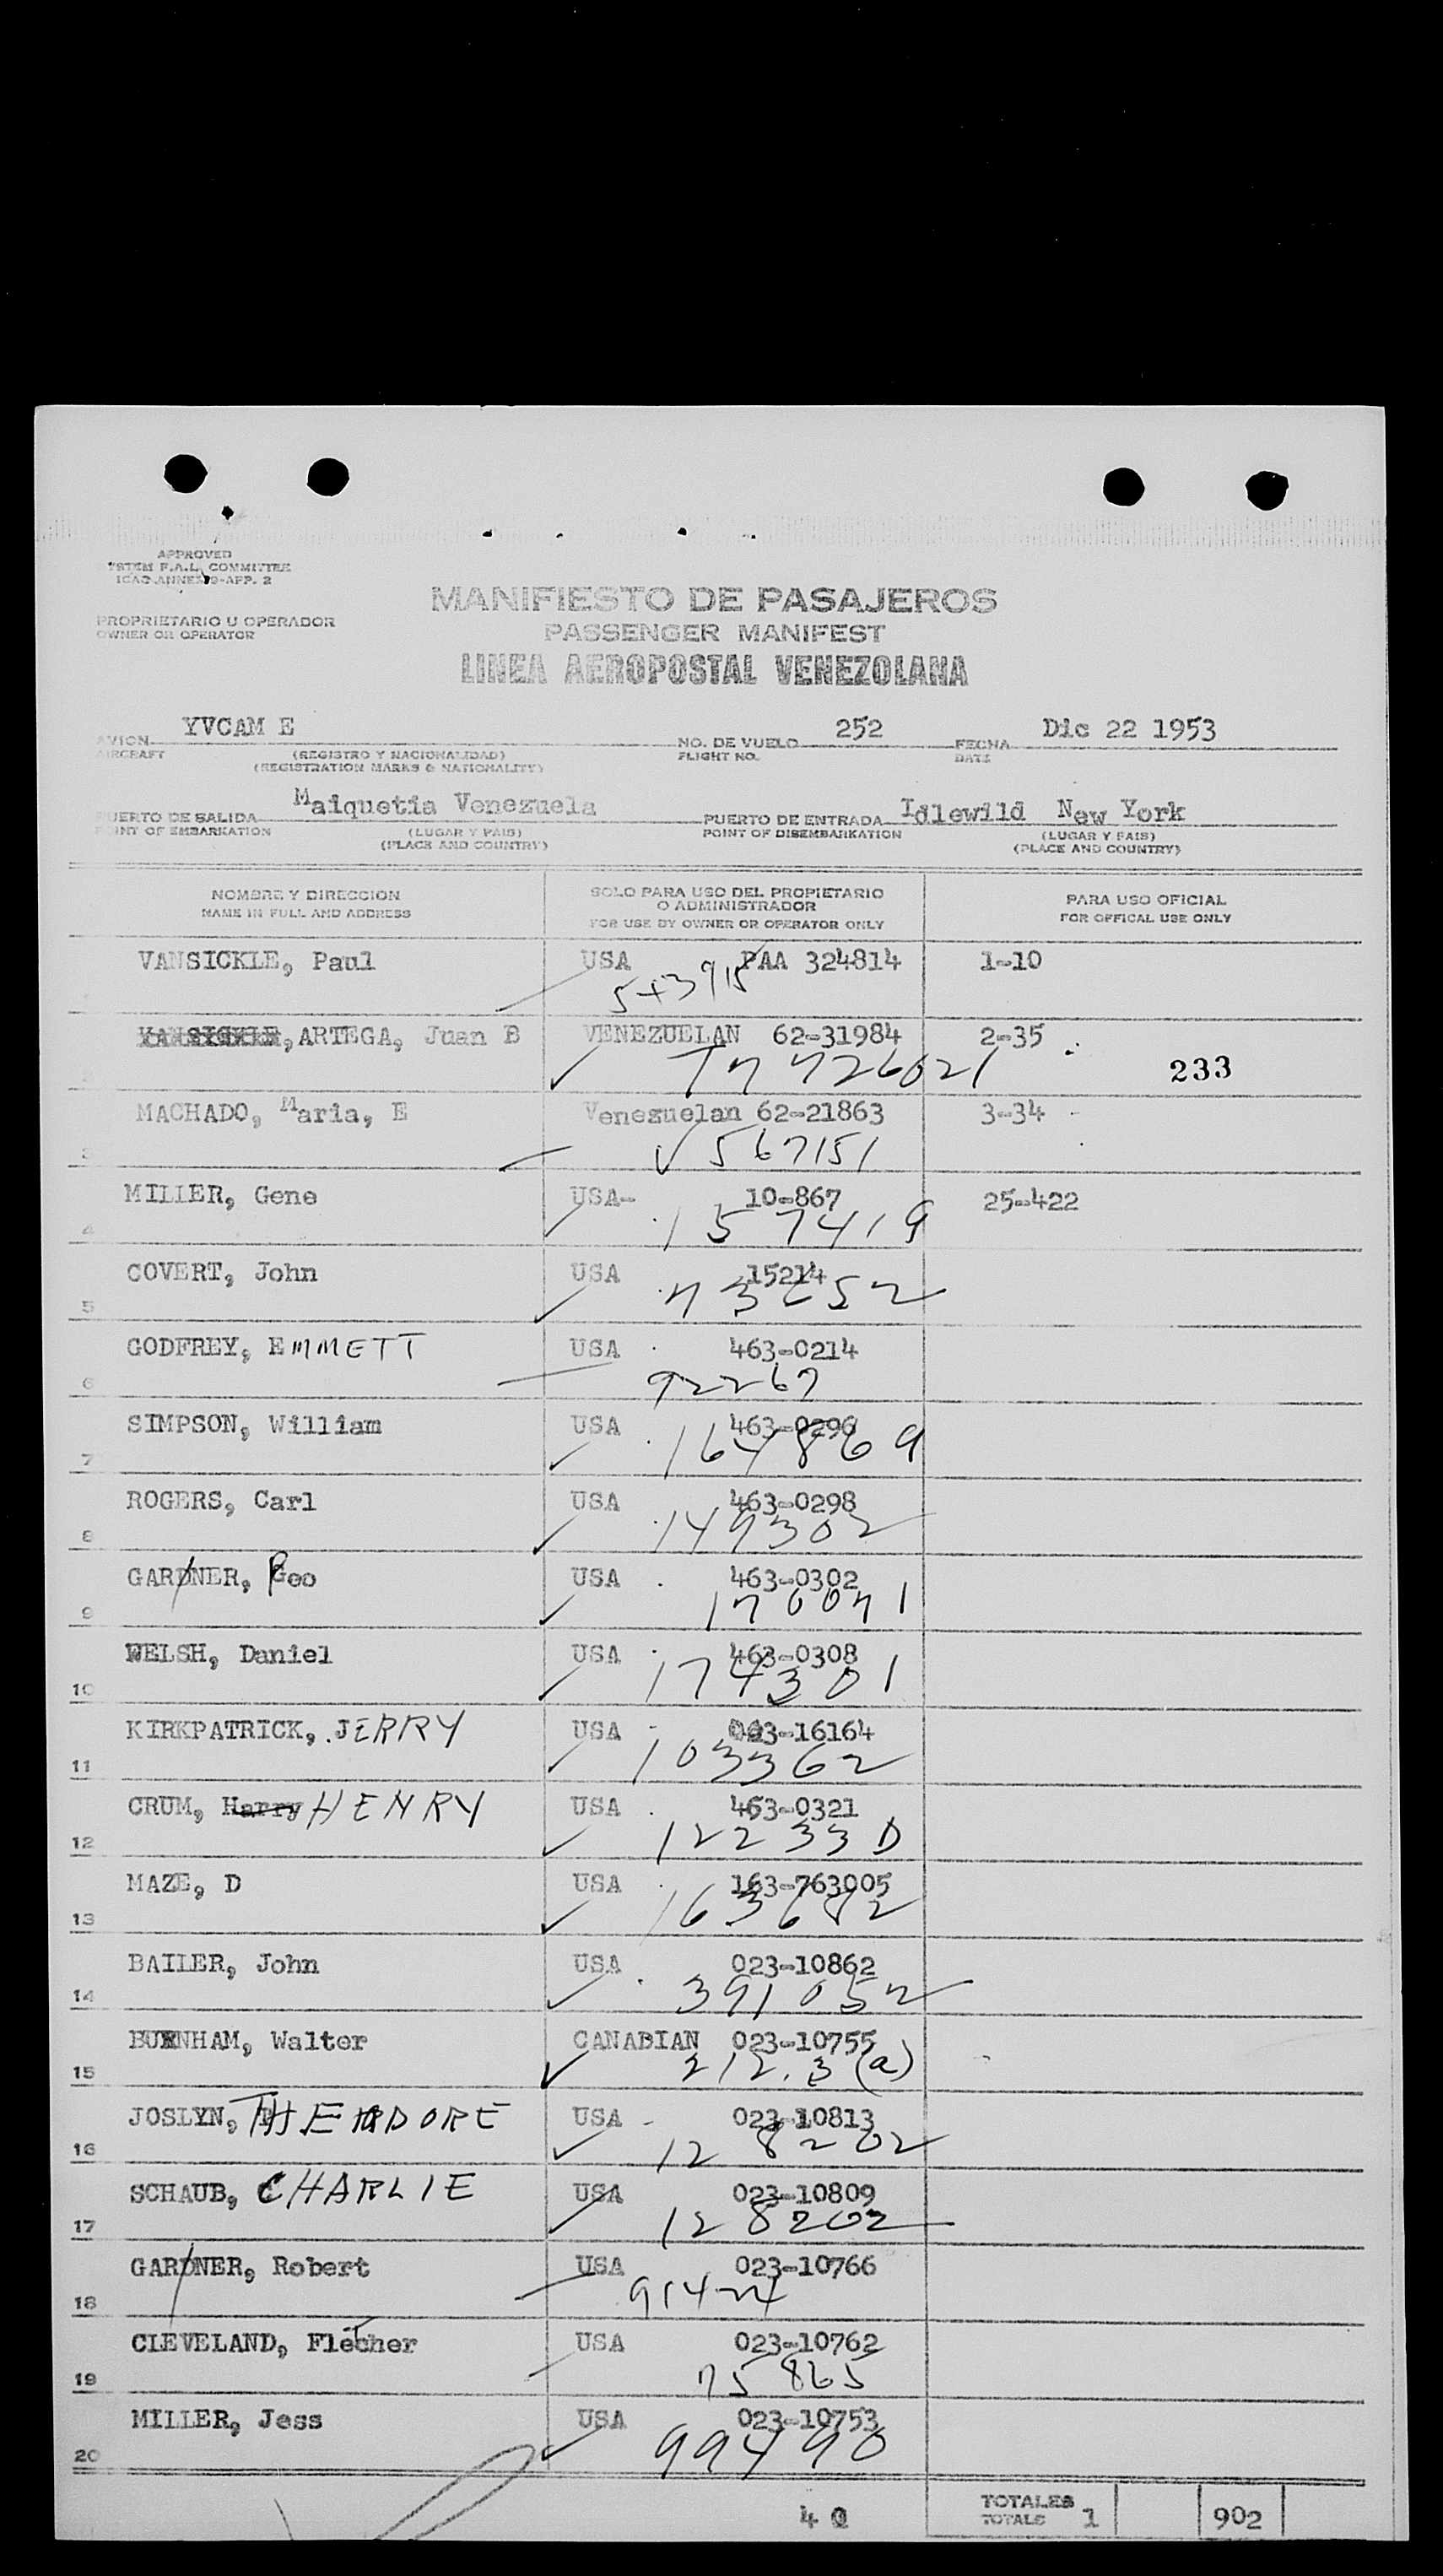 APPROVED
SYSTEM F.A.L. COMMITTEE
ICAO ANNEX 9-APP. 2
MANIFIESTO DE PASAJEROS
PROPRIETARIO U OPERADOR
OWNER OR OPERATOR
PASSENGER MANIFEST
LINEA AEROPOSTAL VENEZOLANA
AVION YVCAM E NO. DE VUELO 252 FECHA Dic 22 1953
AIRCRAFT (REGISTRO Y NACIONALIDAD) FLIGHT NO. DATE
(REGISTRATION MARKS & NATIONALITY)
PUERTO DE SALIDA Maiquetia Venezuela PUERTO DE ENTRADA Idlewild New York
POINT OF EMBARKATION (LUGAR Y PAIS) POINT OF DISEMBARKATION (LUGAR Y PAIS)
(PLACE AND COUNTRY) (PLACE AND COUNTRY)
NOMBRE Y DIRECCION SOLO PARA USO DEL PROPIETARIO PARA USO OFICIAL
NAME IN FULL AND ADDRESS O ADMINISTRADOR FOR OFFICAL USE ONLY
FOR USE BY OWNER OR OPERATOR ONLY
VANSICKLE, Paul USA PAA 324814 1-10
VANSICKLE, ARTEGA, Juan B VENEZUELAN 62-31984 2-35
233
MACHADO, Maria, E Venezuelan 62-21863 3-34
3 567151
MILLER, Gene USA- 10-867 25-422
4 157419
COVERT, John USA 15214
5
GODFREY, EMMETT USA 463-0214
6 92267
SIMPSON, William USA 463-0296
7 164869
ROGERS, Carl USA 463-0298
8 149302
GARDNER, Geo USA 463-0302
9
WELSH, Daniel USA 463-0308
10 174301
KIRKPATRICK, JERRY USA 023-16164
11 103362
CRUM, Harry HENRY USA 463-0321
12
MAZE, D USA 163-763005
13
BAILER, John USA 023-10862
14 391052
BURNHAM, Walter CANADIAN 023-10755
15 212.3 (a)
JOSLYN, THEADORE USA 023-10813
16 128202
SCHAUB, CHARLIE USA 023-10809
17 128202
GARDNER, Robert USA 023-10766
18 91424
CLEVELAND, Fletcher USA 023-10762
19 75865
MILLER, Jess USA 023-10753
20 99490
40 TOTALES
TOTALS 1 902